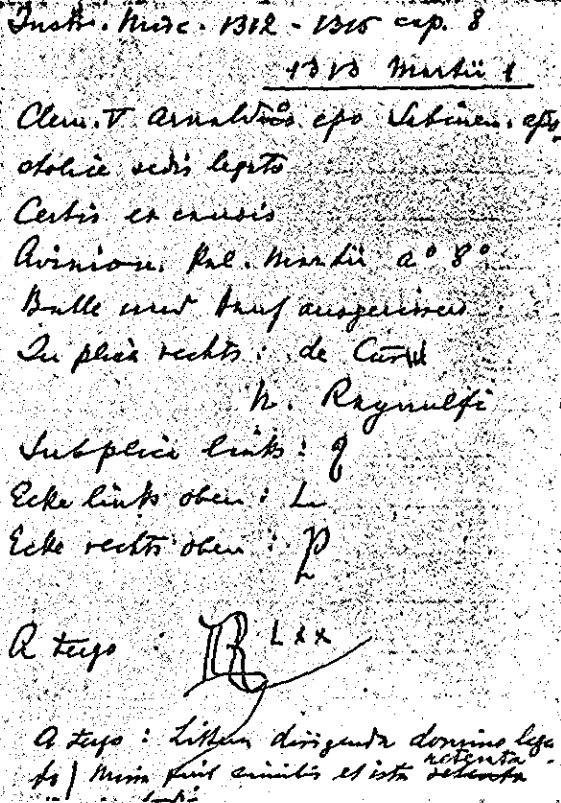 Instr. Misc. 1312 - 1315 cap. 8
1313 Martii 1
Clem. V Arnaldo epo Sabinen. apo
stolice sedis legato
Certis ex causis
Avinion. Kal. Martii a° 8°
Bulle und Hanf ausgerissen
In plica rechts: de Curia
N. Raynulfi
Sub plica links: q
Ecke links oben: L
Ecke rechts oben: P
A tergo : R Lxx
A tergo: Littera dirigenda domino lega
to / missa fuit similis et ista retenta